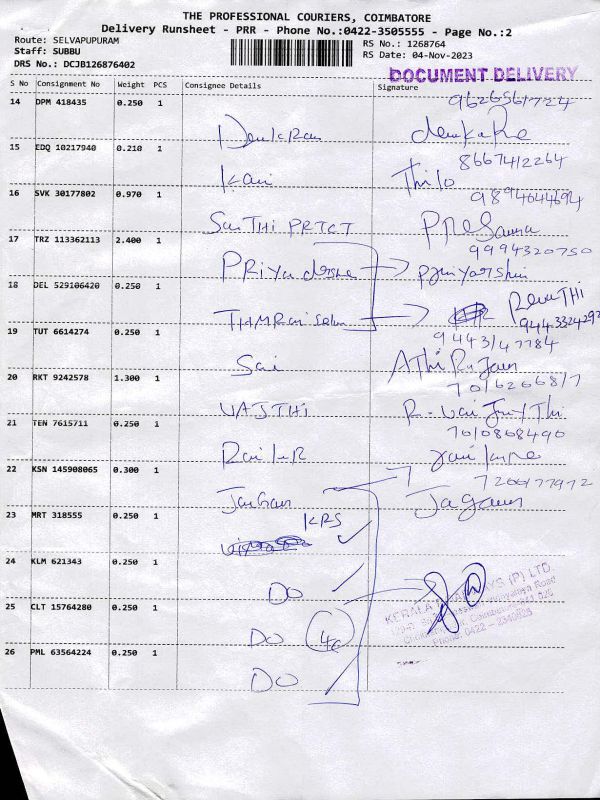 THE PROFESSIONAL COURIERS, COIMBATORE
Delivery Runsheet - PRR - Phone No.:0422-3505555 - Page No.:2
Route: SELVAPUPURAM
Staff: SUBBU
DRS No.: DCJB126876402
RS No.: 1268764
RS Date: 04-Nov-2023
DOCUMENT DELIVERY
S No Consignment No Weight PCS Consignee Details Signature
14 DPM 418435 0.250 1 9626561724
15 EDQ 10217940 0.210 1
8667412264
Kavi Thilo
16 SVK 30177802 0.970 1 9894644694
SaiTHi PRTCT
17 TRZ 113362113 2.400 1 9994320750
PRiya
18 DEL 529106420 0.250 1
RevaTHI
19 TUT 6614274 0.250 1
Sai
20 RKT 9242578 1.300 1
21 TEN 7615711 0.250 1
7010868490
22 KSN 145908065 0.300 1
7200177972
Jagan
23 MRT 318555 0.250 1
KRS
24 KLM 621343 0.250 1
DO
25 CLT 15764280 0.250 1
DO
26 PML 63564224 0.250 1
DO
KERALA
(P) LTD.
Road
Coimbatore
Phone: 0422 - 2340825